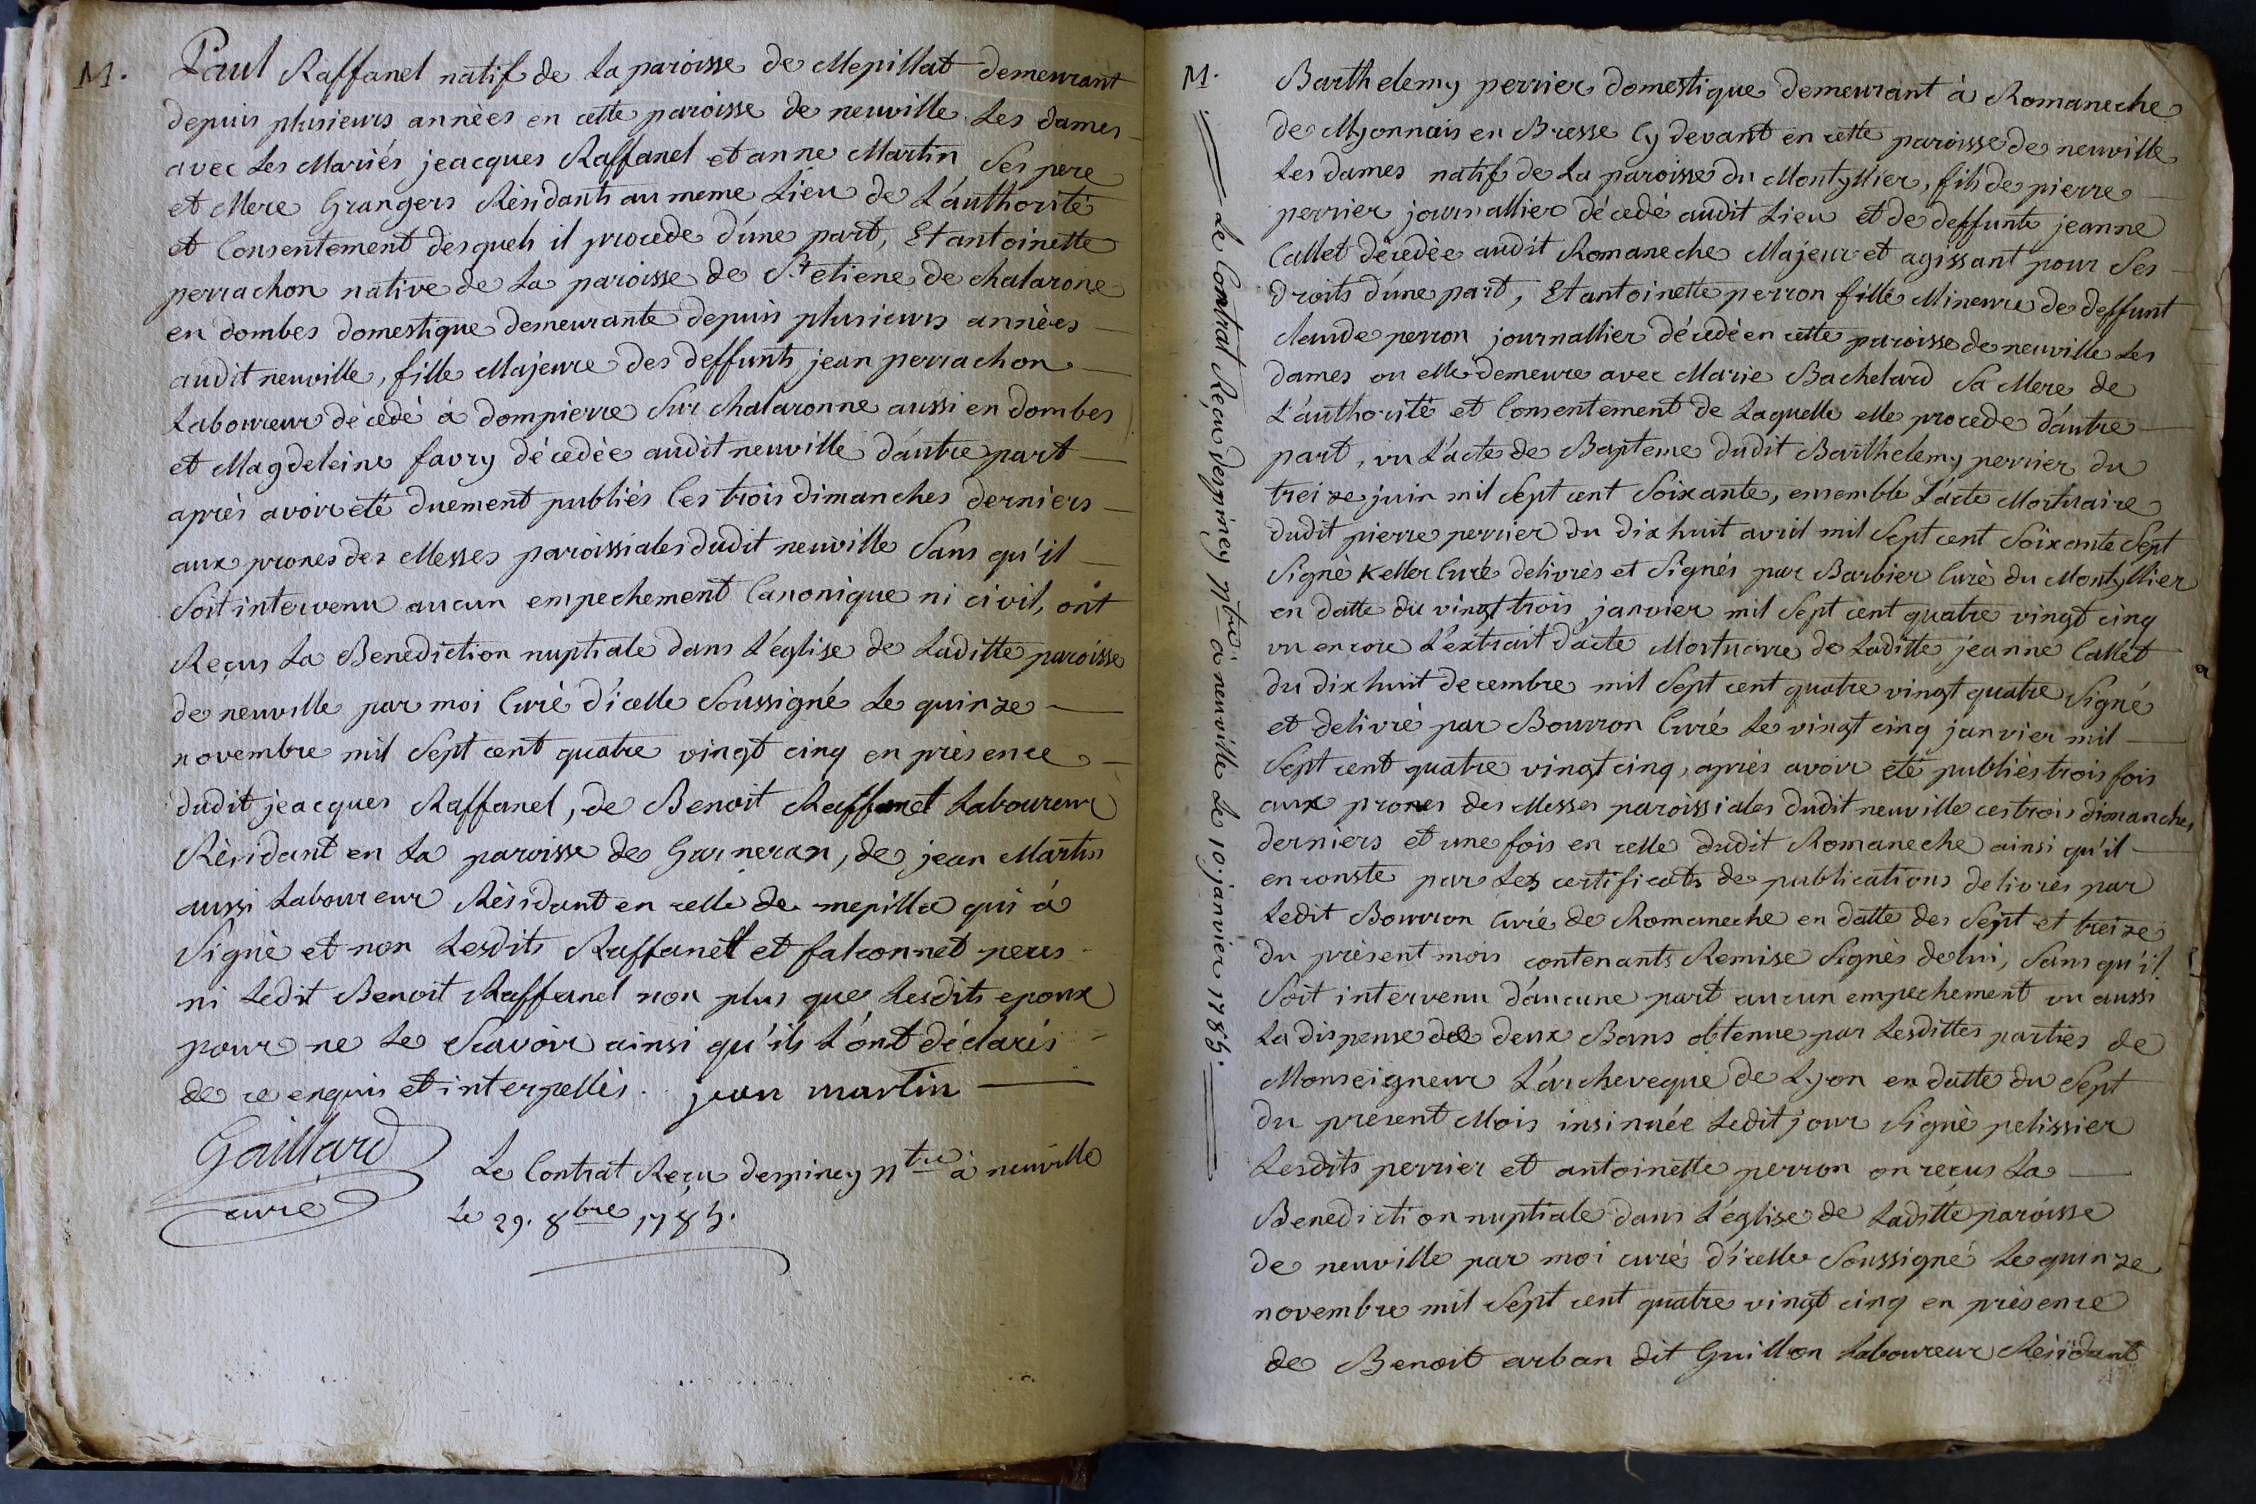 M.
Paul Raffanel natif de La paroisse de Mepillat demeurant
depuis plusieurs années en cette paroisse de neuville Les dames
avec Les Mariés jeacques Raffanel et anne Martin Ses pere
et Mere Grangers Résidants au meme Lieu de L'authorité
et Consentement desquels il procede d'une part, Et antoinette
perrachon native de La paroisse de St etiene de chalarone
en dombes domestique demeurante depuis plusieurs années
audit neuville, fille Majeure des deffunts jean perrachon
Laboureur décedé à dompierre Sur chalaronne aussi en dombes
et Magdeleine favry décedée audit neuville d'autre part
après avoir eté duement publiés Ces trois dimanches derniers
aux prones des Messes paroissiales dudit neuville Sans qu'il
Soit intervenu aucun empechement Canonique ni civil, ont
Reçus La Benediction nuptiale dans L'église de Laditte paroisse
de neuville par moi Curé d'icelle Soussigné Le quinze
novembre mil Sept cent quatre vingt cinq en présence
dudit jeacques Raffanel, de Benoit Raffanel Laboureur
Résidant en La paroisse de Garneran, de jean Martin
aussi Laboureur Résidant en celle de mepilla qui à
Signé et non Lesdits Raffanell et falconnet peres
ni Ledit Benoit Raffanel non plus que Lesdits epoux
pour ne Le Scavoir ainsi qu'ils L'ont déclarés
de ce enquis et interpellés. jean martin
Gaillard
curé
Le Contrat Reçu despiney ntre à neuville
Le 29. 8bre 1785.
M.
Le Contrat Reçu despiney ntre à neuville Le 10. janvier 1785.
Barthelemy perrier domestique demeurant à Romaneche
de Myonnais en Bresse Cy devant en cette paroisse de neuville
Les dames natif de La paroisse du Montyllier, fils de pierre
perrier journallier décedé audit Lieu et de deffunte jeanne
Callet décedée audit Romaneche Majeur et agissant pour Ses
droits d'une part, Et antoinette perron fille Mineure de deffunt
claude perron journallier décedé en cette paroisse de neuville Les
dames ou elle demeure avec Marie Bachelard Sa Mere de
L'authorité et Consentement de Laquelle elle procede d'autre
part, vu L'acte de Bapteme dudit Barthelemy perrier du
treize juin mil Sept cent Soixante, ensemble L'acte Mortuaire
dudit pierre perrier du dix huit avril mil Sept cent Soixante Sept
Signé Keller Curé delivrés et Signés par Barbier Curé du Montyllier
en datte du vingt trois janvier mil Sept cent quatre vingt cinq
vu encore L'extrait d'acte Mortuaire de Laditte jeanne Callet
du dix huit decembre mil Sept cent quatre vingt quatre Signé
et delivré par Bourron Curé Le vingt cinq janvier mil
Sept cent quatre vingt cinq, après avoir eté publiés trois fois
aux prones des Messes paroissiales dudit neuville ces trois dimanches
derniers et une fois en celle dudit Romaneche ainsi qu'il
en conste par Les certificats de publications delivrés par
Ledit Bourron Curé de Romaneche en datte des Sept et treize
du présent mois contenants Remise Signés de lui, Sans qu'il
Soit intervenu d'aucune part aucun empechement vu aussi
La dispense de deux Bans obtenue par Lesdittes parties de
Monseigneur L'archeveque de Lyon en datte du Sept
du present Mois insinuée Ledit jour Signé pelissier
Lesdits perrier et antoinette perron on recus La
Benediction nuptiale dans L'église de Laditte paroisse
de neuville par moi curé d'icelle Soussigné Le quinze
novembre mil Sept cent quatre vingt cinq en présence
de Benoit arban dit Guillon Laboureur Résidant